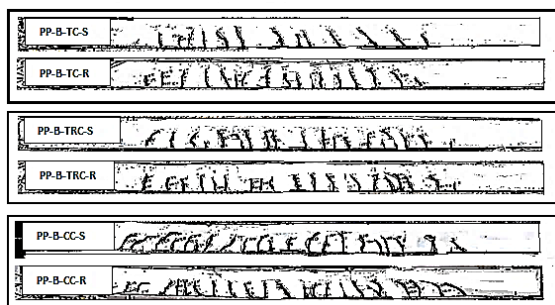 PP-B-TC-S
PP-B-TC-R
PP-B-TRC-S
PP-B-TRC-R
PP-B-CC-S
PP-B-CC-R